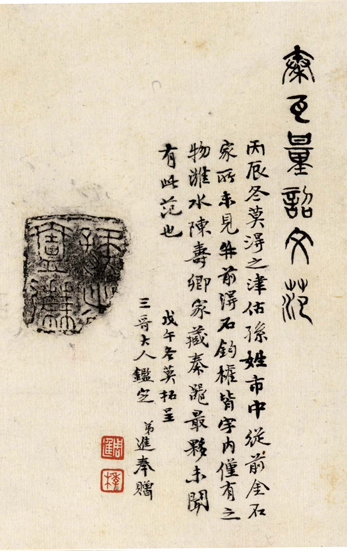 秦瓦量詔文范
丙辰冬莫得之津估孫姓市中從前金石
家所未見与前得石鈞權皆宇内僅有之
物濰水陳壽卿家藏秦器最夥未聞
有此范也
戊午冬莫拓呈
三哥大人鑑定
弟進奉贈
周進